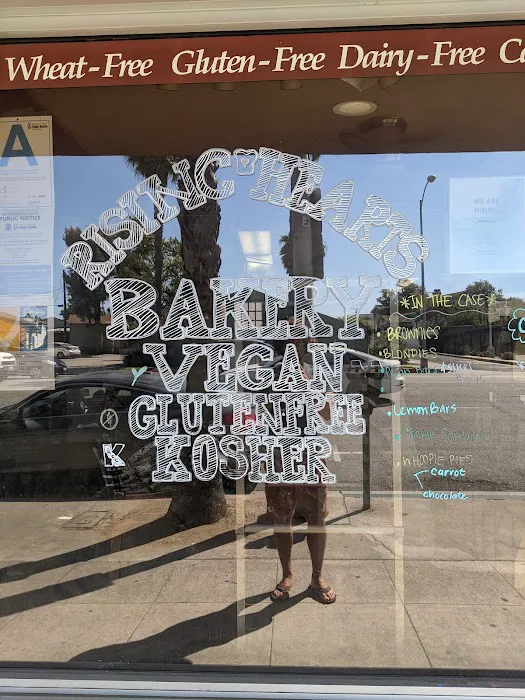 Wheat-Free Gluten-Free Dairy-Free
A
PUBLIC NOTICE
RISING HEARTS
BAKERY
VEGAN
GLUTENFREE
K KOSHER
*IN THE CASE*
•BROWNIES
•BLONDIES
•LEMON BARS
•WHOOPIE PIES
carrot
chocolate